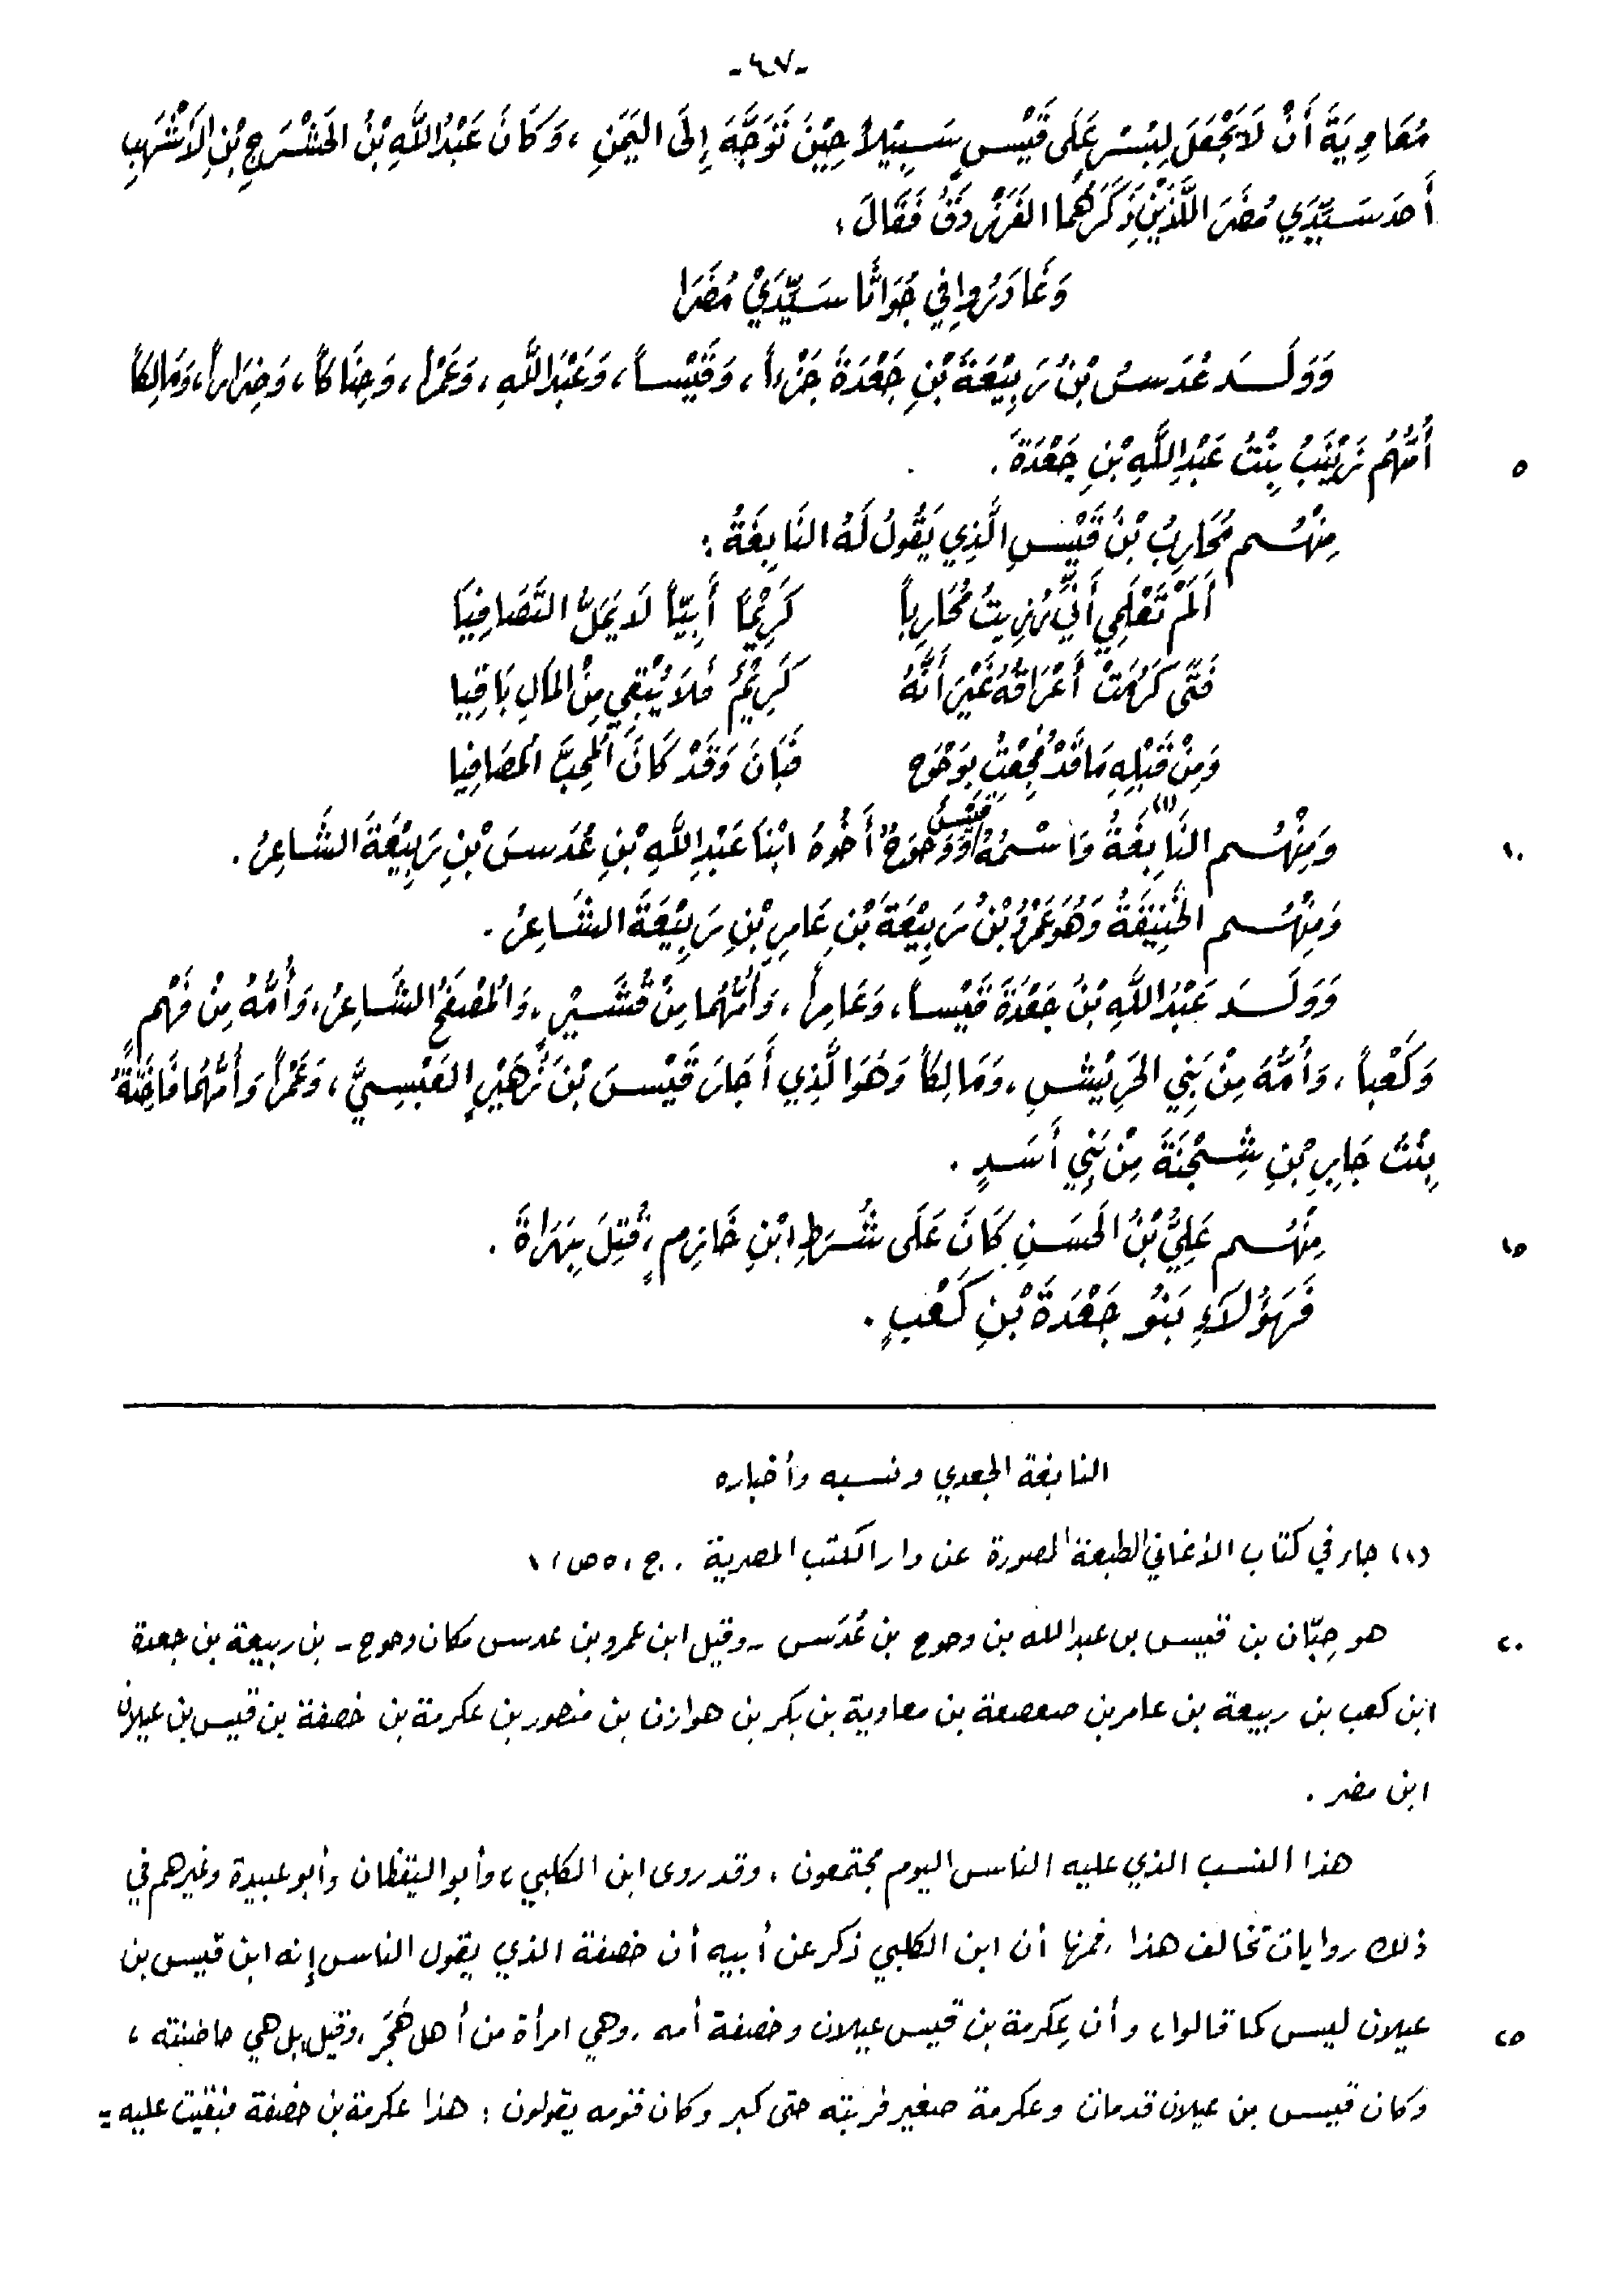 -٤٧-
مُعَاوِيَةَ أَنْ لَا يَجْعَلَ لِبُسْرٍ عَلَى قَيْسٍ سَبِيْلاً حِيْنَ تَوَجَّهَ إِلَى اليَمَنِ ، وَكَانَ عَبْدُ اللَّهِ بْنُ الحَشْرَجِ بْنِ الأَشْهَبِ
أَحَدَ سَيِّدَي مُضَرَ اللَّذَيْنِ ذَكَرَهُمَا الفَرَزْدَقُ فَقَالَ :
وَغَادَرُوا فِي جُوَاثَا سَيِّدَيْ مُضَرَا
وَوَلَدَ عُدَسُ بْنُ رَبِيْعَةَ بْنِ جَعْدَةَ جَزْءاً ، وَقَيْساً ، وَعَبْدَ اللَّهِ ، وَعَمْراً ، وَحِنَاكاً ، وَضِرَاراً ، وَمَالِكاً
أُمُّهُم زَيْنَبُ بِنْتُ عَبْدِ اللَّهِ بْنِ جَعْدَةَ .
٥
مِنْهُم مُحَارِبُ بْنُ قَيْسٍ الَّذِي يَقُولُ لَهُ النَابِغَةُ :
أَلَمْ تَعْلَمِي أَنِّي رُزِيتُ مُحَارِباً كَرِيْماً أَبِيّاً لَا يَمَلُّ التَّصَافِيَا
فَتًى كَرُمَتْ أَعْرَاقُهُ غَيْرَ أَنَّهُ كَرِيْمٌ فَلَا يُبْقِي مِنْ المَالِ بَاقِيا
وَمِنْ قَبْلِهِ مَا قَدْ فُجِعْتُ بِوَحْوَحٍ فَبَانَ وَقَدْ كَانَ المُحِبَّ المُصَافِيا
وَمِنْهُم النَابِغَةُ (١) وَاسْمُهُ قَيْسٌ وَوَحْوَحٌ أَخُوهُ ابْنَا عَبْدِ اللَّهِ بْنِ عُدَسَ بْنِ رَبِيْعَةَ الشَّاعِرُ .
١٠
وَمِنْهُم الخَنِيْقَةُ وَهُوَ عَمْرُو بْنُ رَبِيْعَةَ بْنِ عَامِرِ بْنِ رَبِيْعَةَ الشَّاعِرُ .
وَوَلَدَ عَبْدُ اللَّهِ بْنُ جَعْدَةَ قَيْساً ، وَعَامِراً ، وَأُمُّهُمَا مِنْ قُشَيْرٍ ، وَالمُصْفَحُ الشَّاعِرُ ، وَأُمُّهُ مِنْ فَهْمٍ
وَكَعْباً ، وَأُمُّهُ مِنْ بَنِي الحَرِيْشِ ، وَمَالِكاً وَهُوَ الَّذِي أَجَارَ قَيْسَ بْنَ زُهَيْرٍ العَبْسِيَّ ، وَعَمْراً وَأُمُّهُمَا فَاخِتَةُ
بِنْتُ جَابِرِ بْنِ شِجْنَةَ مِنْ بَنِي أَسَدٍ .
مِنْهُم عَلِيُّ بْنُ الحَسَنِ كَانَ عَلَى شُرَطِ ابْنِ خَازِمٍ ، قُتِلَ بِهَرَاةَ .
١٥
فَهَؤُلَاءِ بَنُو جَعْدَةَ بْنِ كَعْبٍ .
النابغة الجعدي ونسبه وأخباره
(١) جاء في كتاب الأغاني الطبعة المصورة عن دار الكتب المصرية . ج : ٥ ص : ١
هو حِبّان بن قيس بن عبد الله بن وحوح بن عُدَس - وقيل ابن عمرو بن عدس مكان وحوح - بن ربيعة بن جعدة
٢٠
ابن كعب بن ربيعة بن عامر بن صعصعة بن معاوية بن بكر بن هوازن بن منصور بن عكرمة بن خصفة بن قيس بن عيلان
ابن مضر .
هذا النسب الذي عليه الناس اليوم مجتمعون ، وقد روى ابن الكلبي ، وأبو اليقظان وأبو عبيدة وغيرهم في
ذلك روايات تخالف هذا ، فمنها أن ابن الكلبي ذكر عن أبيه أن خصفة الذي يقول الناس إنه ابن قيس بن
عيلان ليس كما قالوا ، وأن عِكرمة بن قيس عيلان وخصفة أمه ، وهي امرأة من أهل هَجَر ، وقيل بل هي حاضنته ،
٢٥
وكان قيس بن عيلان قد مات وعكرمة صغير فربته حتى كبر وكان قومه يقولون : هذا عكرمة بن خصفة فبقيت عليه =